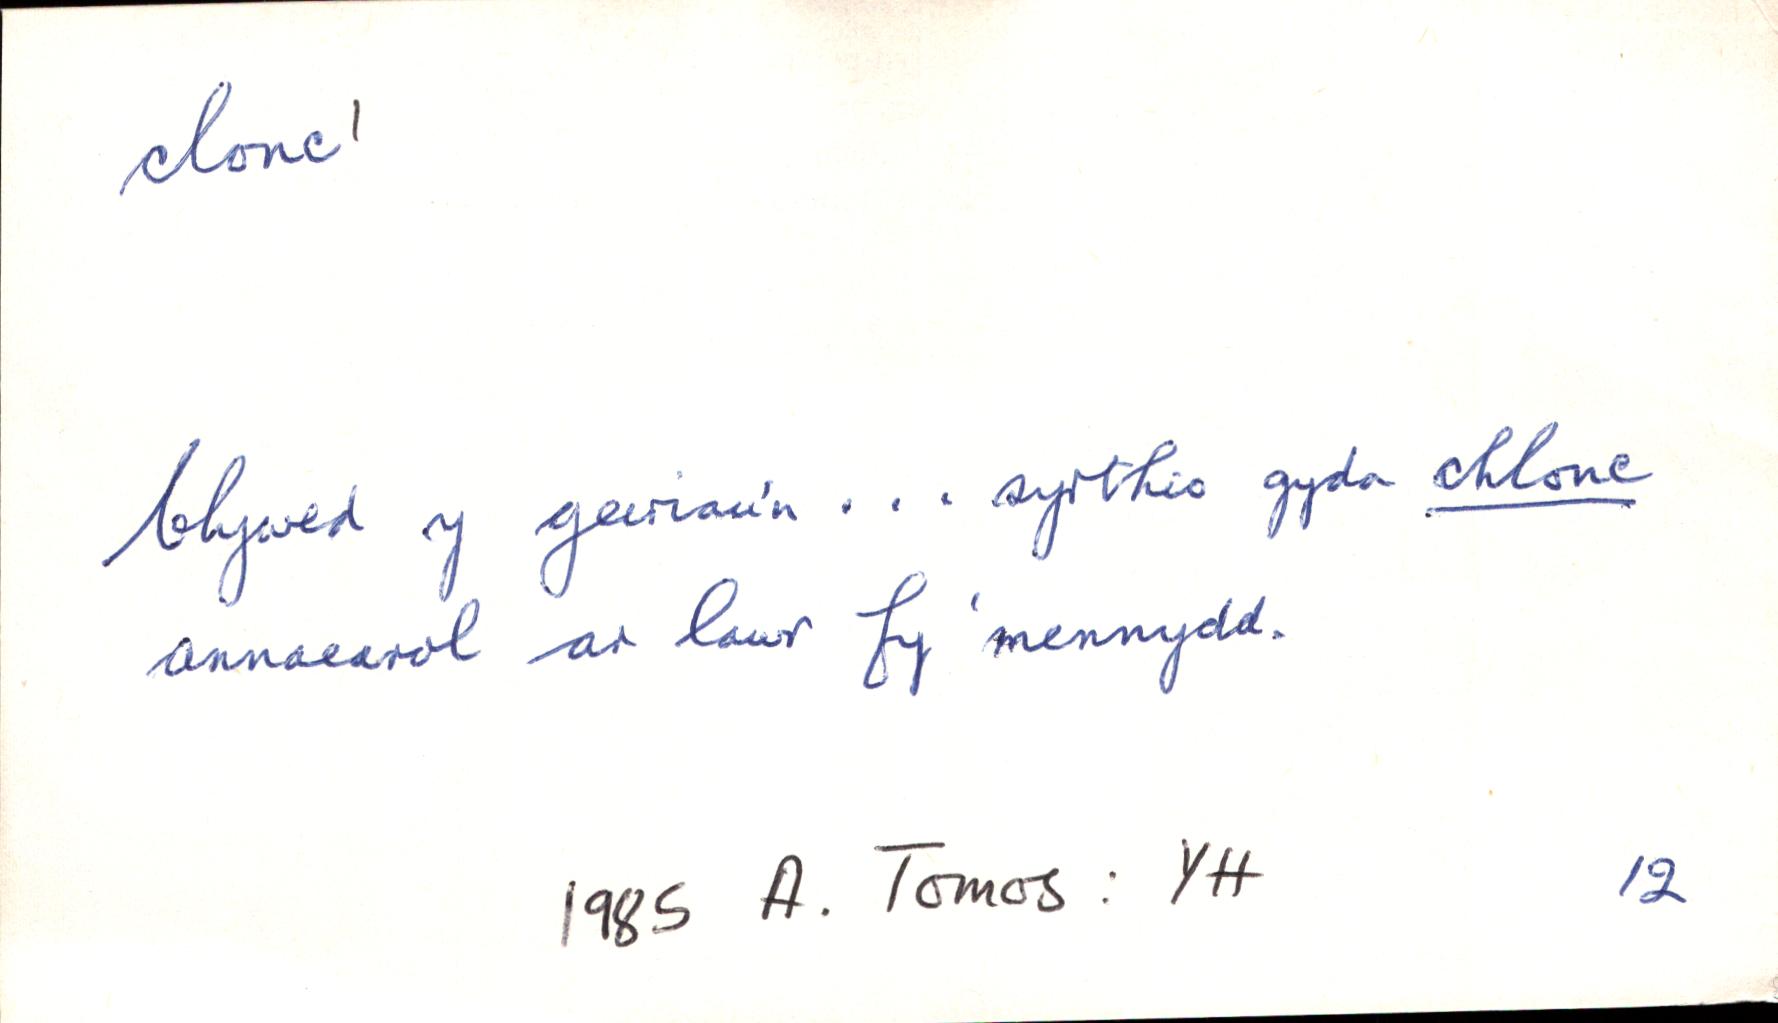 clonc¹
Clywed y geiriau'n . . . syrthio gyda chlonc
annaearol ar lawr fy 'mennydd.
1985 A. Tomos: YH 12